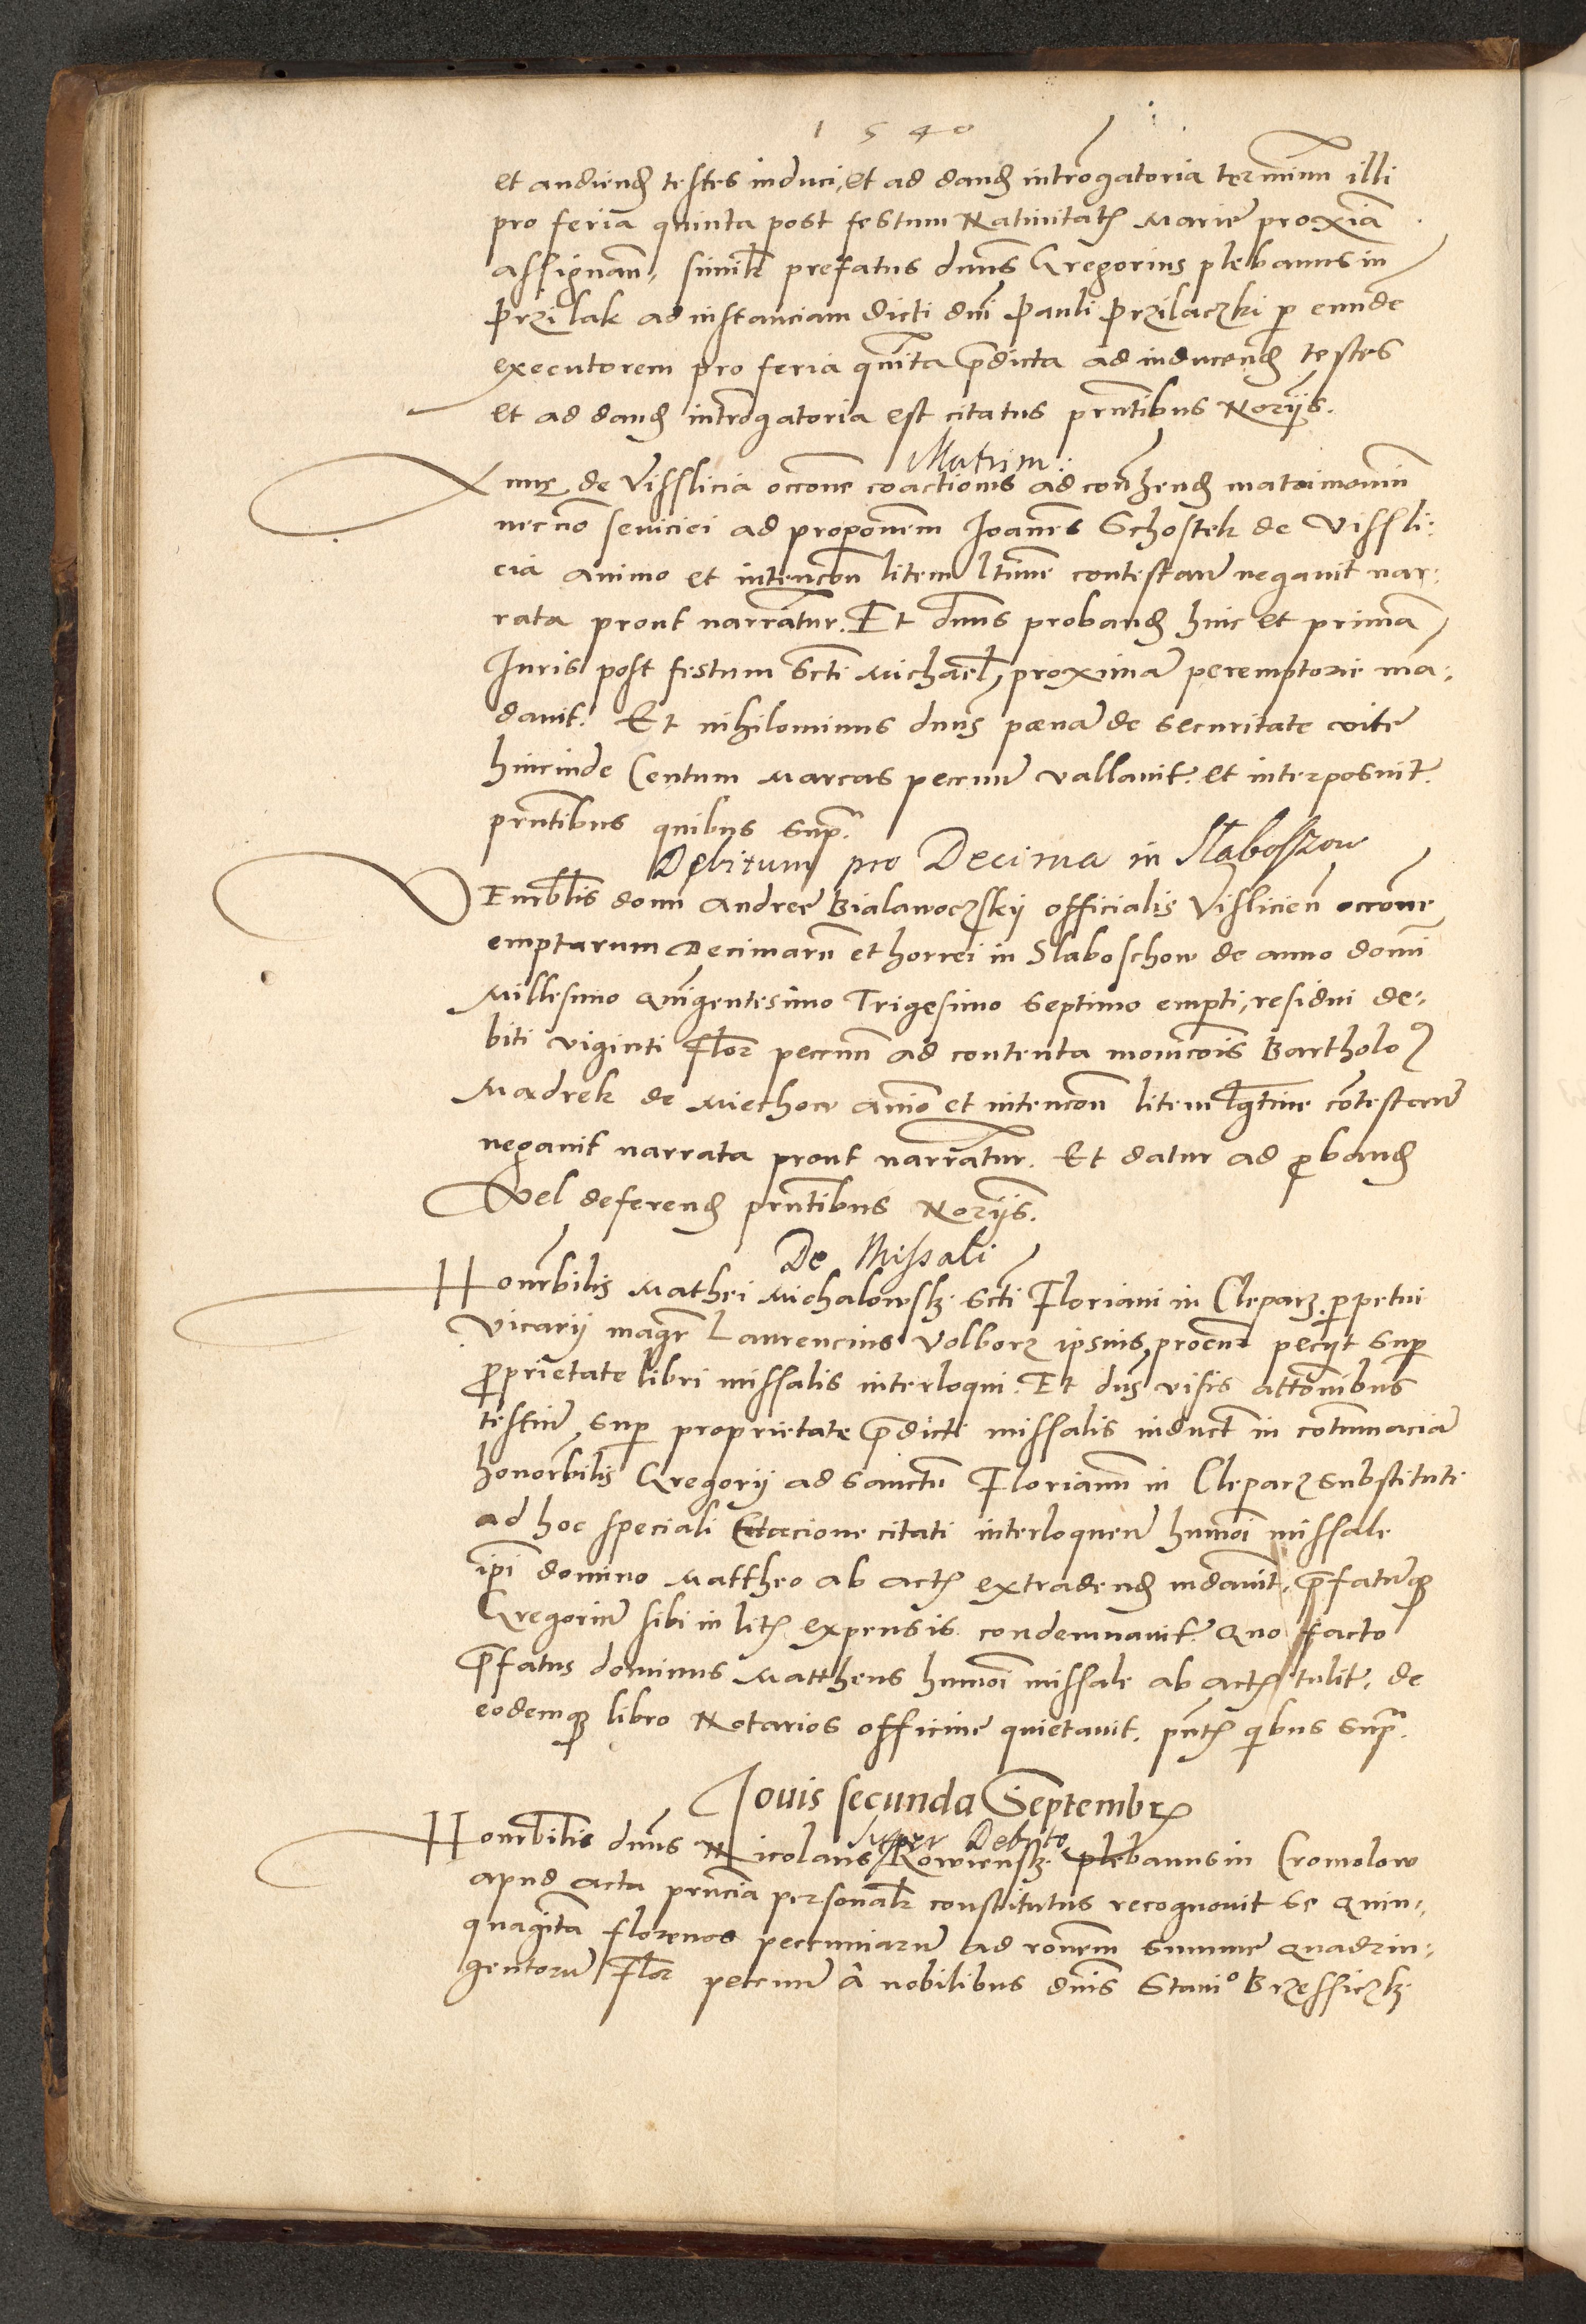 1540
et audiend testes induci, et ad dand introgatoria terminum illi
pro feria quinta post festum Natiuitatis Marie proxia
assignaui, similr prefatus dnus Gregorius plebanus in
Przilak ad instanciam dicti dni Pauli Przilaczki p eunde
executorem pro feria quinta pdicta ad inducend testes
et ad dand introgatoria est citatus pntibus Norijs.
Matrim:
de Visslicia occone coactionis ad conhend matrimonium
necno seuiciei ad proponem Joannes Schostek de Vissli:
cia animo et intencon litem ltime contestan negauit nar:
rata prout narrantur. Et dnus proband hinc et prima
Juris post festum Scti Michael proxima peremptorie man:
dauit. Et nihilominus dnus pœna de securitate vite
hincinde Centum Marcas pecun vallauit et interposuit.
pntibus quibus supra.
Debitum pro Decima in Slabosszow
Venerblis domi Andree Bialawoczskij officialis Vislicien occone
emptarum Decimaru et horrei in Slaboschow de anno domi
Millesimo Quingentesimo Trigesimo Septimo empti, residui de:
biti viginti Flor pecun ad contenta monicois Bartholo
Madrek de Miechow animo et intencon litem lgtime contestan
negauit narrata prout narrantur. Et datur ad proband
Vel deferend pntibus Norijs.
De Missali
Honorbilis Mathei Michalowsk Scti Floriani in Cleparz ppetui
Vicarij magr Laurencius Volborz ipsius procur petijt sup
proprietate libri missalis interloqui. Et dnus visis attonibus
testium sup proprietate pdicti missalis induct in contumacia
honorbilis Gregorij ad Sanctu Florianu in Cleparz substituti
ad hoc speciali Citacione citati interloquen humoi missale
ipi domino Mattheo ab actis extradend mdauit, pfatumq
Gregoriu sibi in litis expensis condemnauit. Quo facto
pfatus dominus Mattheus humoi missale ab actis tulit, de
eodemq libro Notarios officine quietauit. pntis qibus supra.
Jouis secunda Septembris
Super Debito
Honorbilis dnus Nicolaus plebanus in Cromolow
apud acta pncia personalr constitutus recognouit se Quin:
quaginta florenos pecuniaru ad ronem summe Quadrin:
gentoru Flor pecun a nobilibus dnis Stanio Brzessiczk